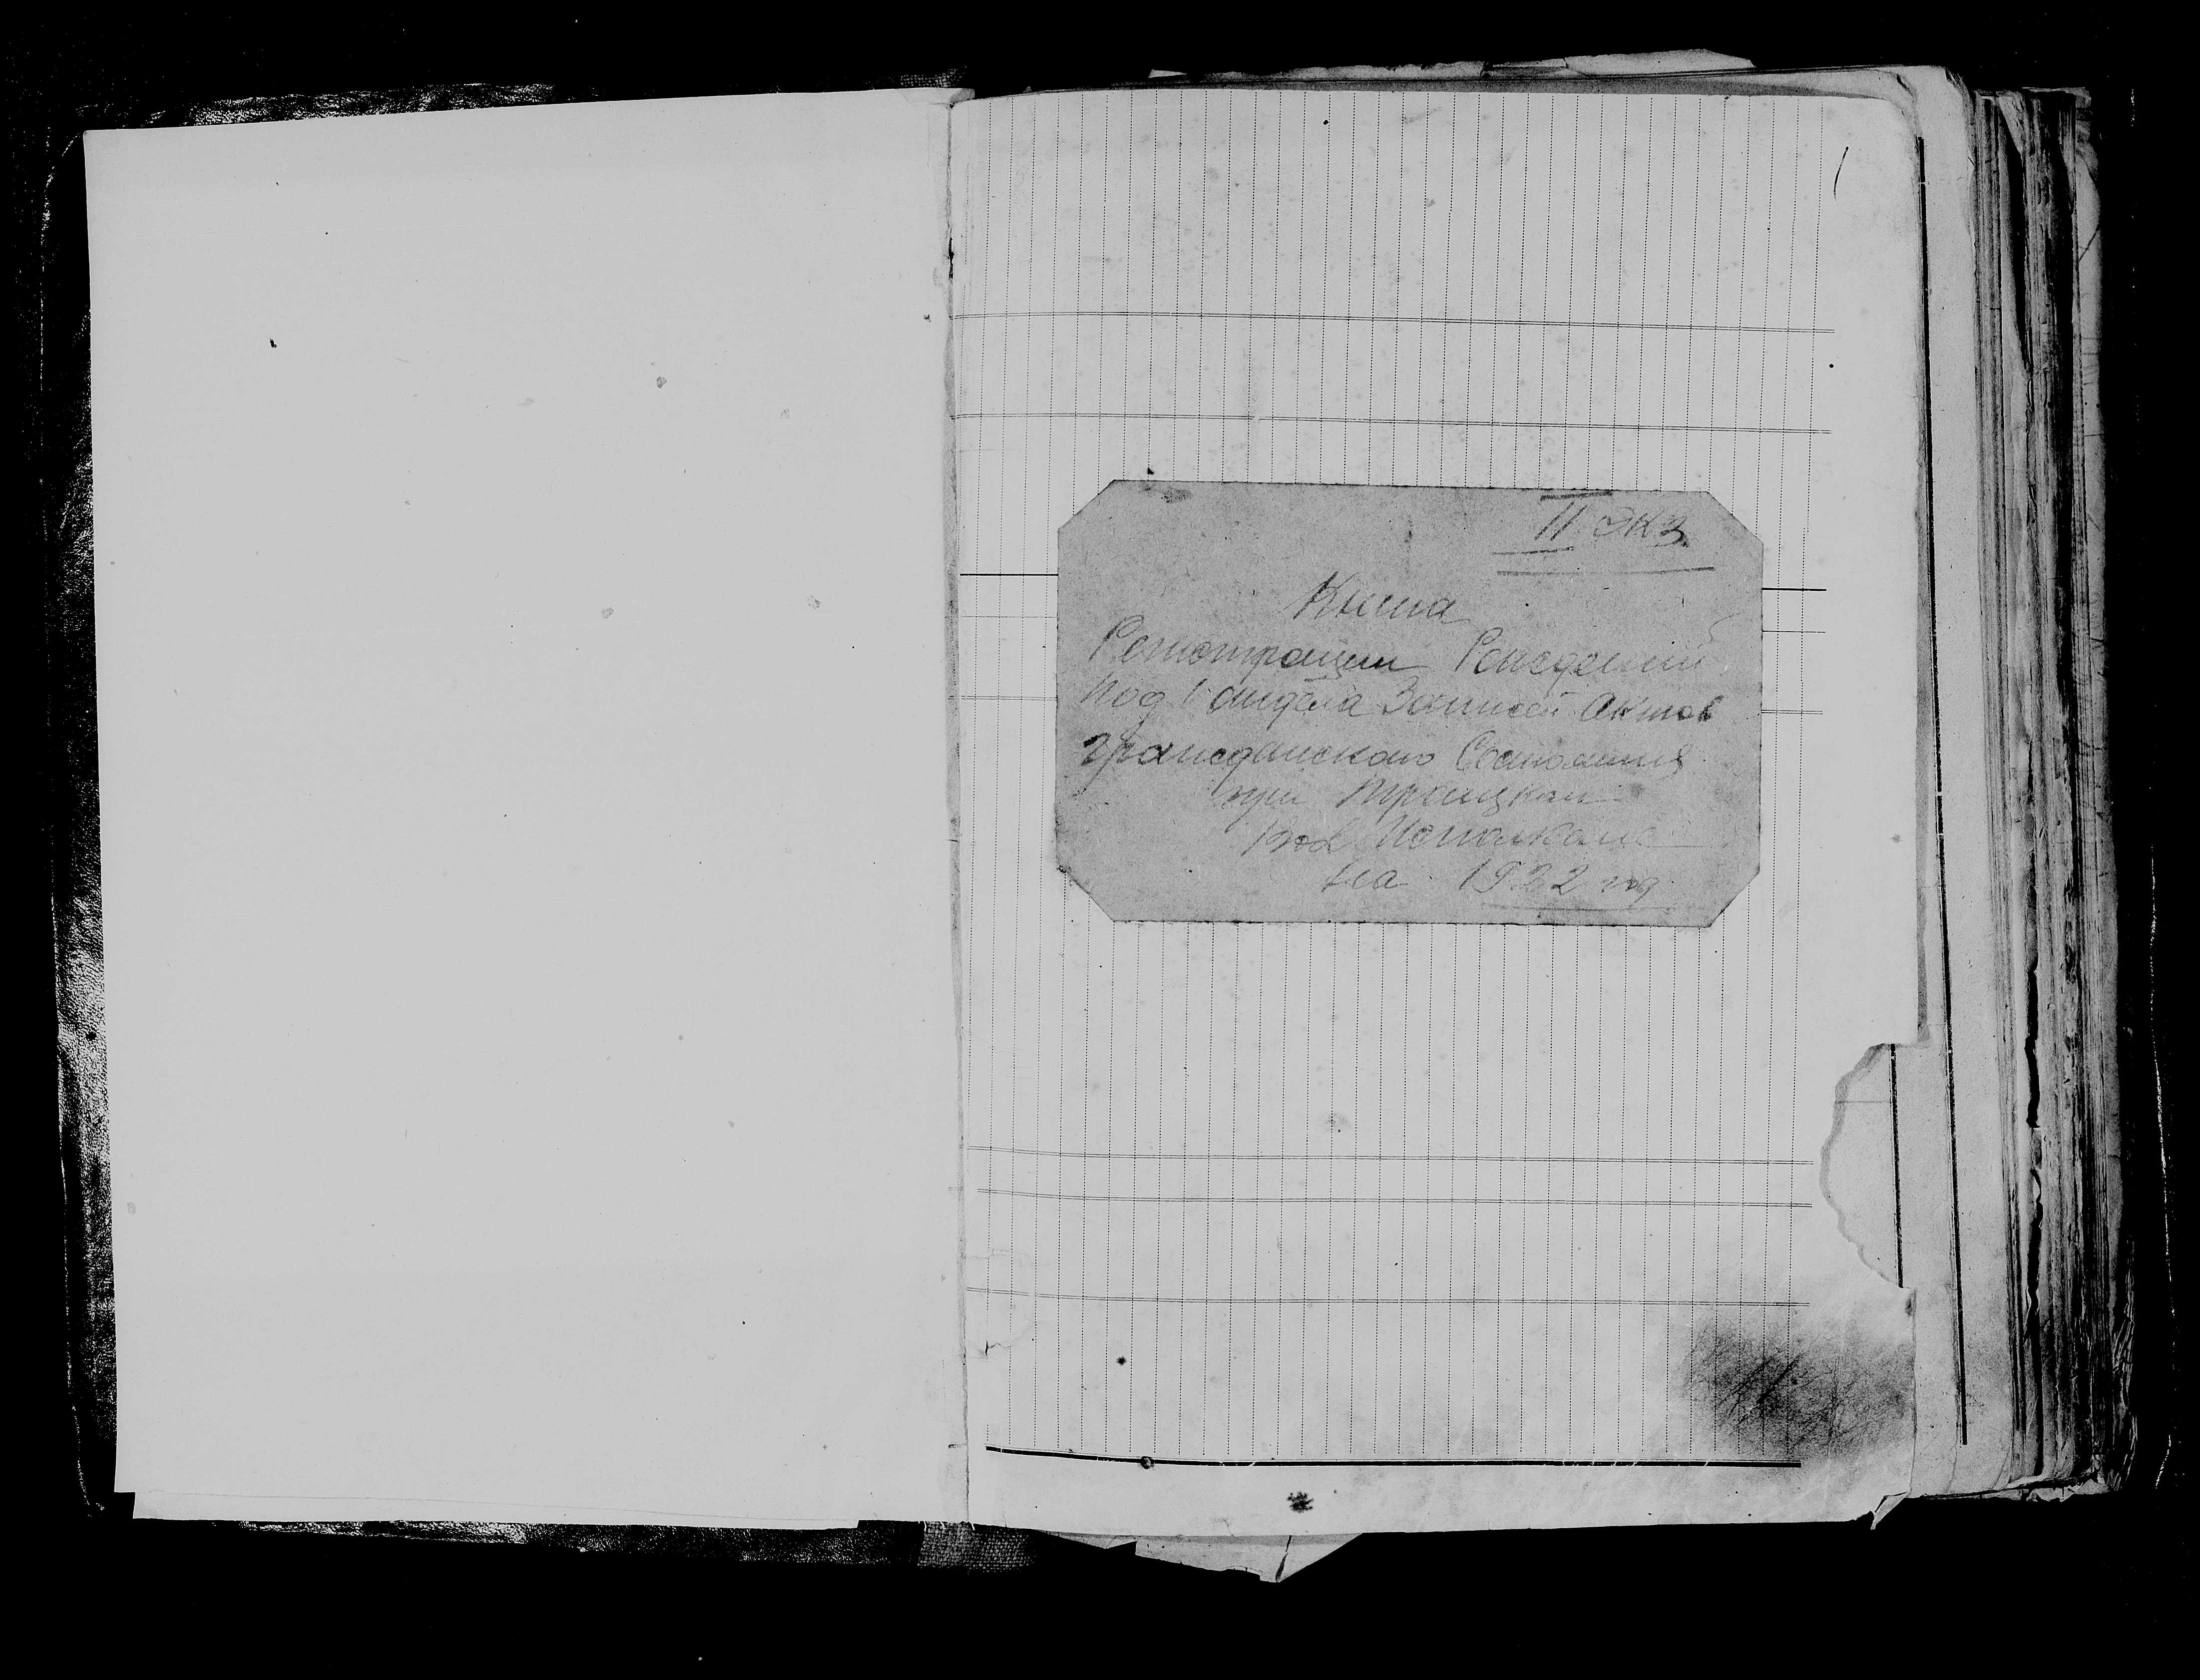 II экз.
Книга
Регистрации Рождений
Под/отдела Записей Актов
гражданского Состояния
при Троицком
Вол Исполкоме
на 1922 год